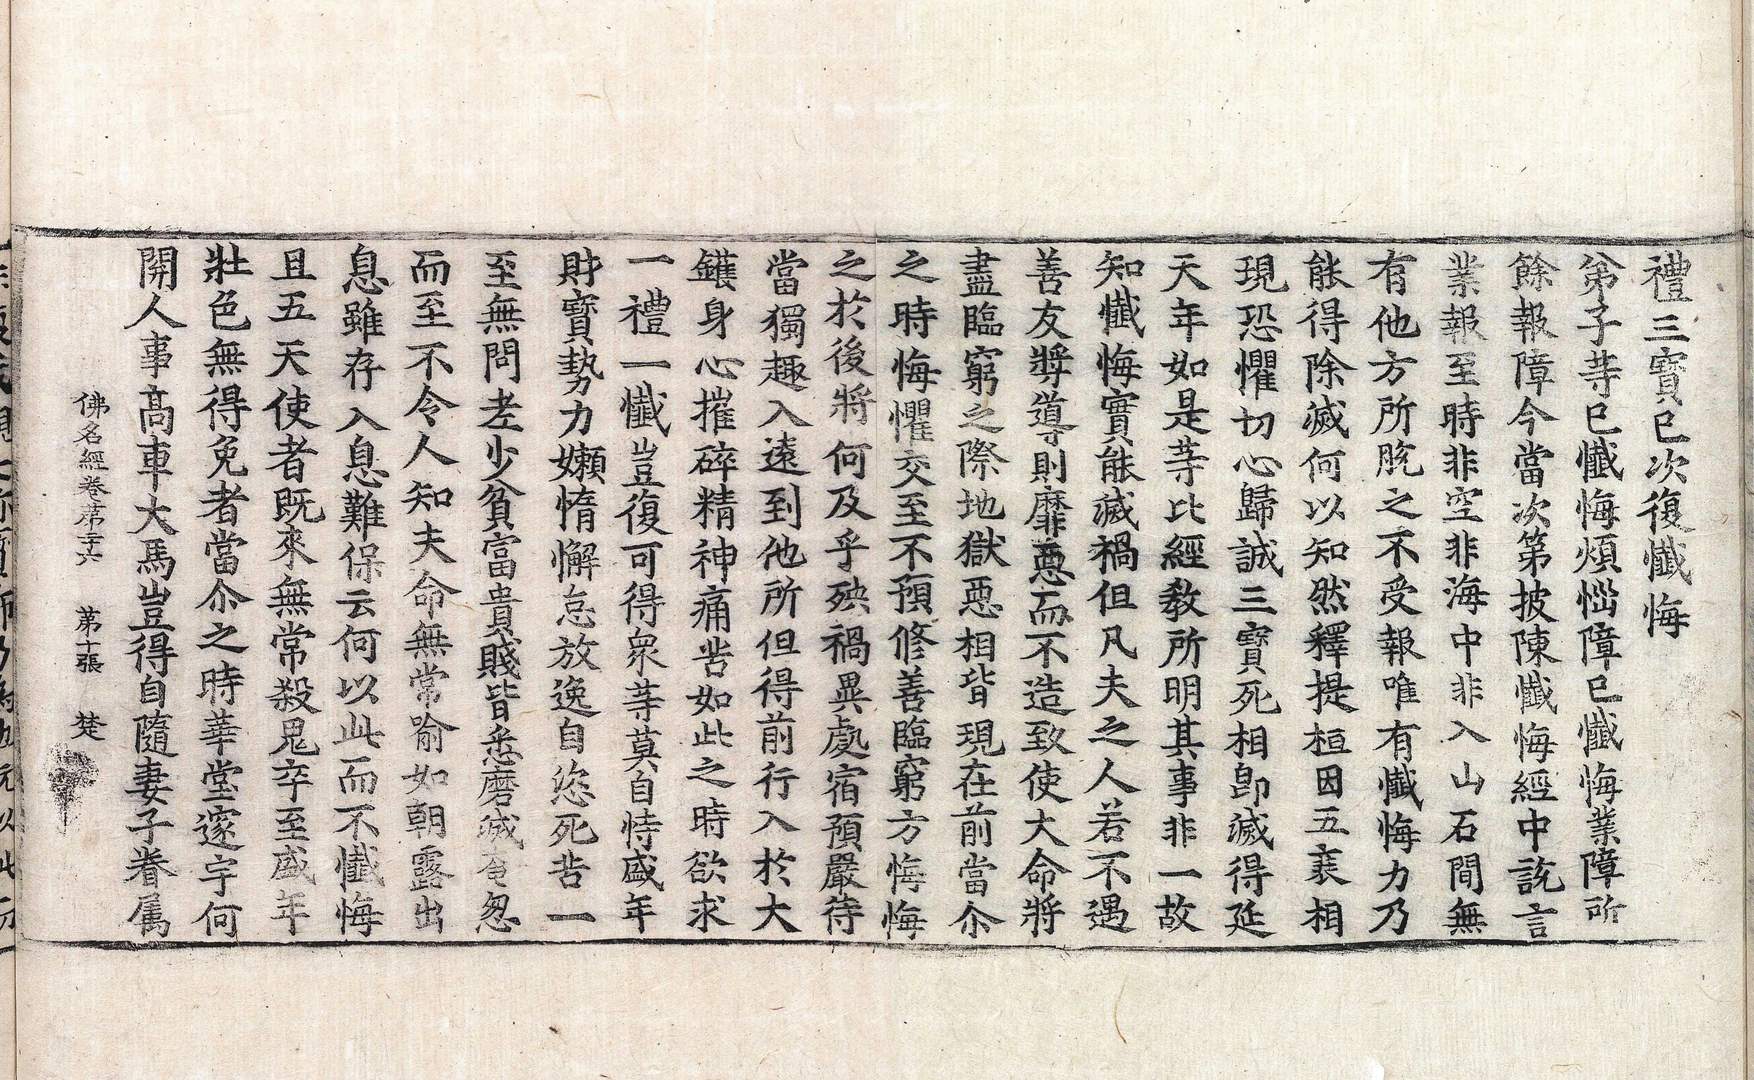 禮三寶已次復懺悔
弟子等已懺悔煩惱障已懺悔業障所
餘報障今當次第披陳懺悔經中說言
業報至時非空非海中非入山石間無
有他方所脫之不受報唯有懺悔力乃
能得除滅何以知然釋提桓因五衰相
現恐懼切心歸誠三寶死相即滅得延
天年如是等比經教所明其事非一故
知懺悔實能滅禍但凡夫之人若不遇
善友獎導則靡惡而不造致使大命將
盡臨窮之際地獄惡相皆現在前當尒
之時悔懼交至不預修善臨窮方悔悔
之於後將何及乎殃禍異處宿預嚴待
當獨趣入遠到他所但得前行入於大
鑊身心摧碎精神痛苦如此之時欲求
一禮一懺豈復可得衆等莫自恃盛年
財寶勢力嬾惰懈怠放逸自恣死苦一
至無問老少貧富貴賤皆悉磨滅奄忽
而至不令人知夫命無常喻如朝露出
息雖存入息難保云何以此而不懺悔
且五天使者既來無常殺鬼卒至盛年
壯色無得免者當尒之時華堂邃宇何
關人事高車大馬豈得自隨妻子眷属
佛名經卷苐二十六 苐十張 楚